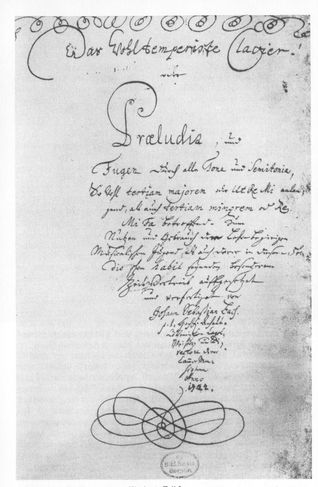 Das Wohltemperirte Clavier.
oder
Præludia, und
Fugen durch alle Tone und Semitonia,
So wohl tertiam majorem oder Ut Re Mi anlan-
gend, als auch tertiam minorem oder Re
Mi Fa betreffend. Zum
Nutzen und Gebrauch der Lehrbegierigen
Musicalischen Jugend, als auch derer in diesem stu-
dio schon habil seyenden besonderem
Zeitvertreib auffgesetzet
und verfertiget von
Johann Sebastian Bach.
p. t.
Anno
1722.